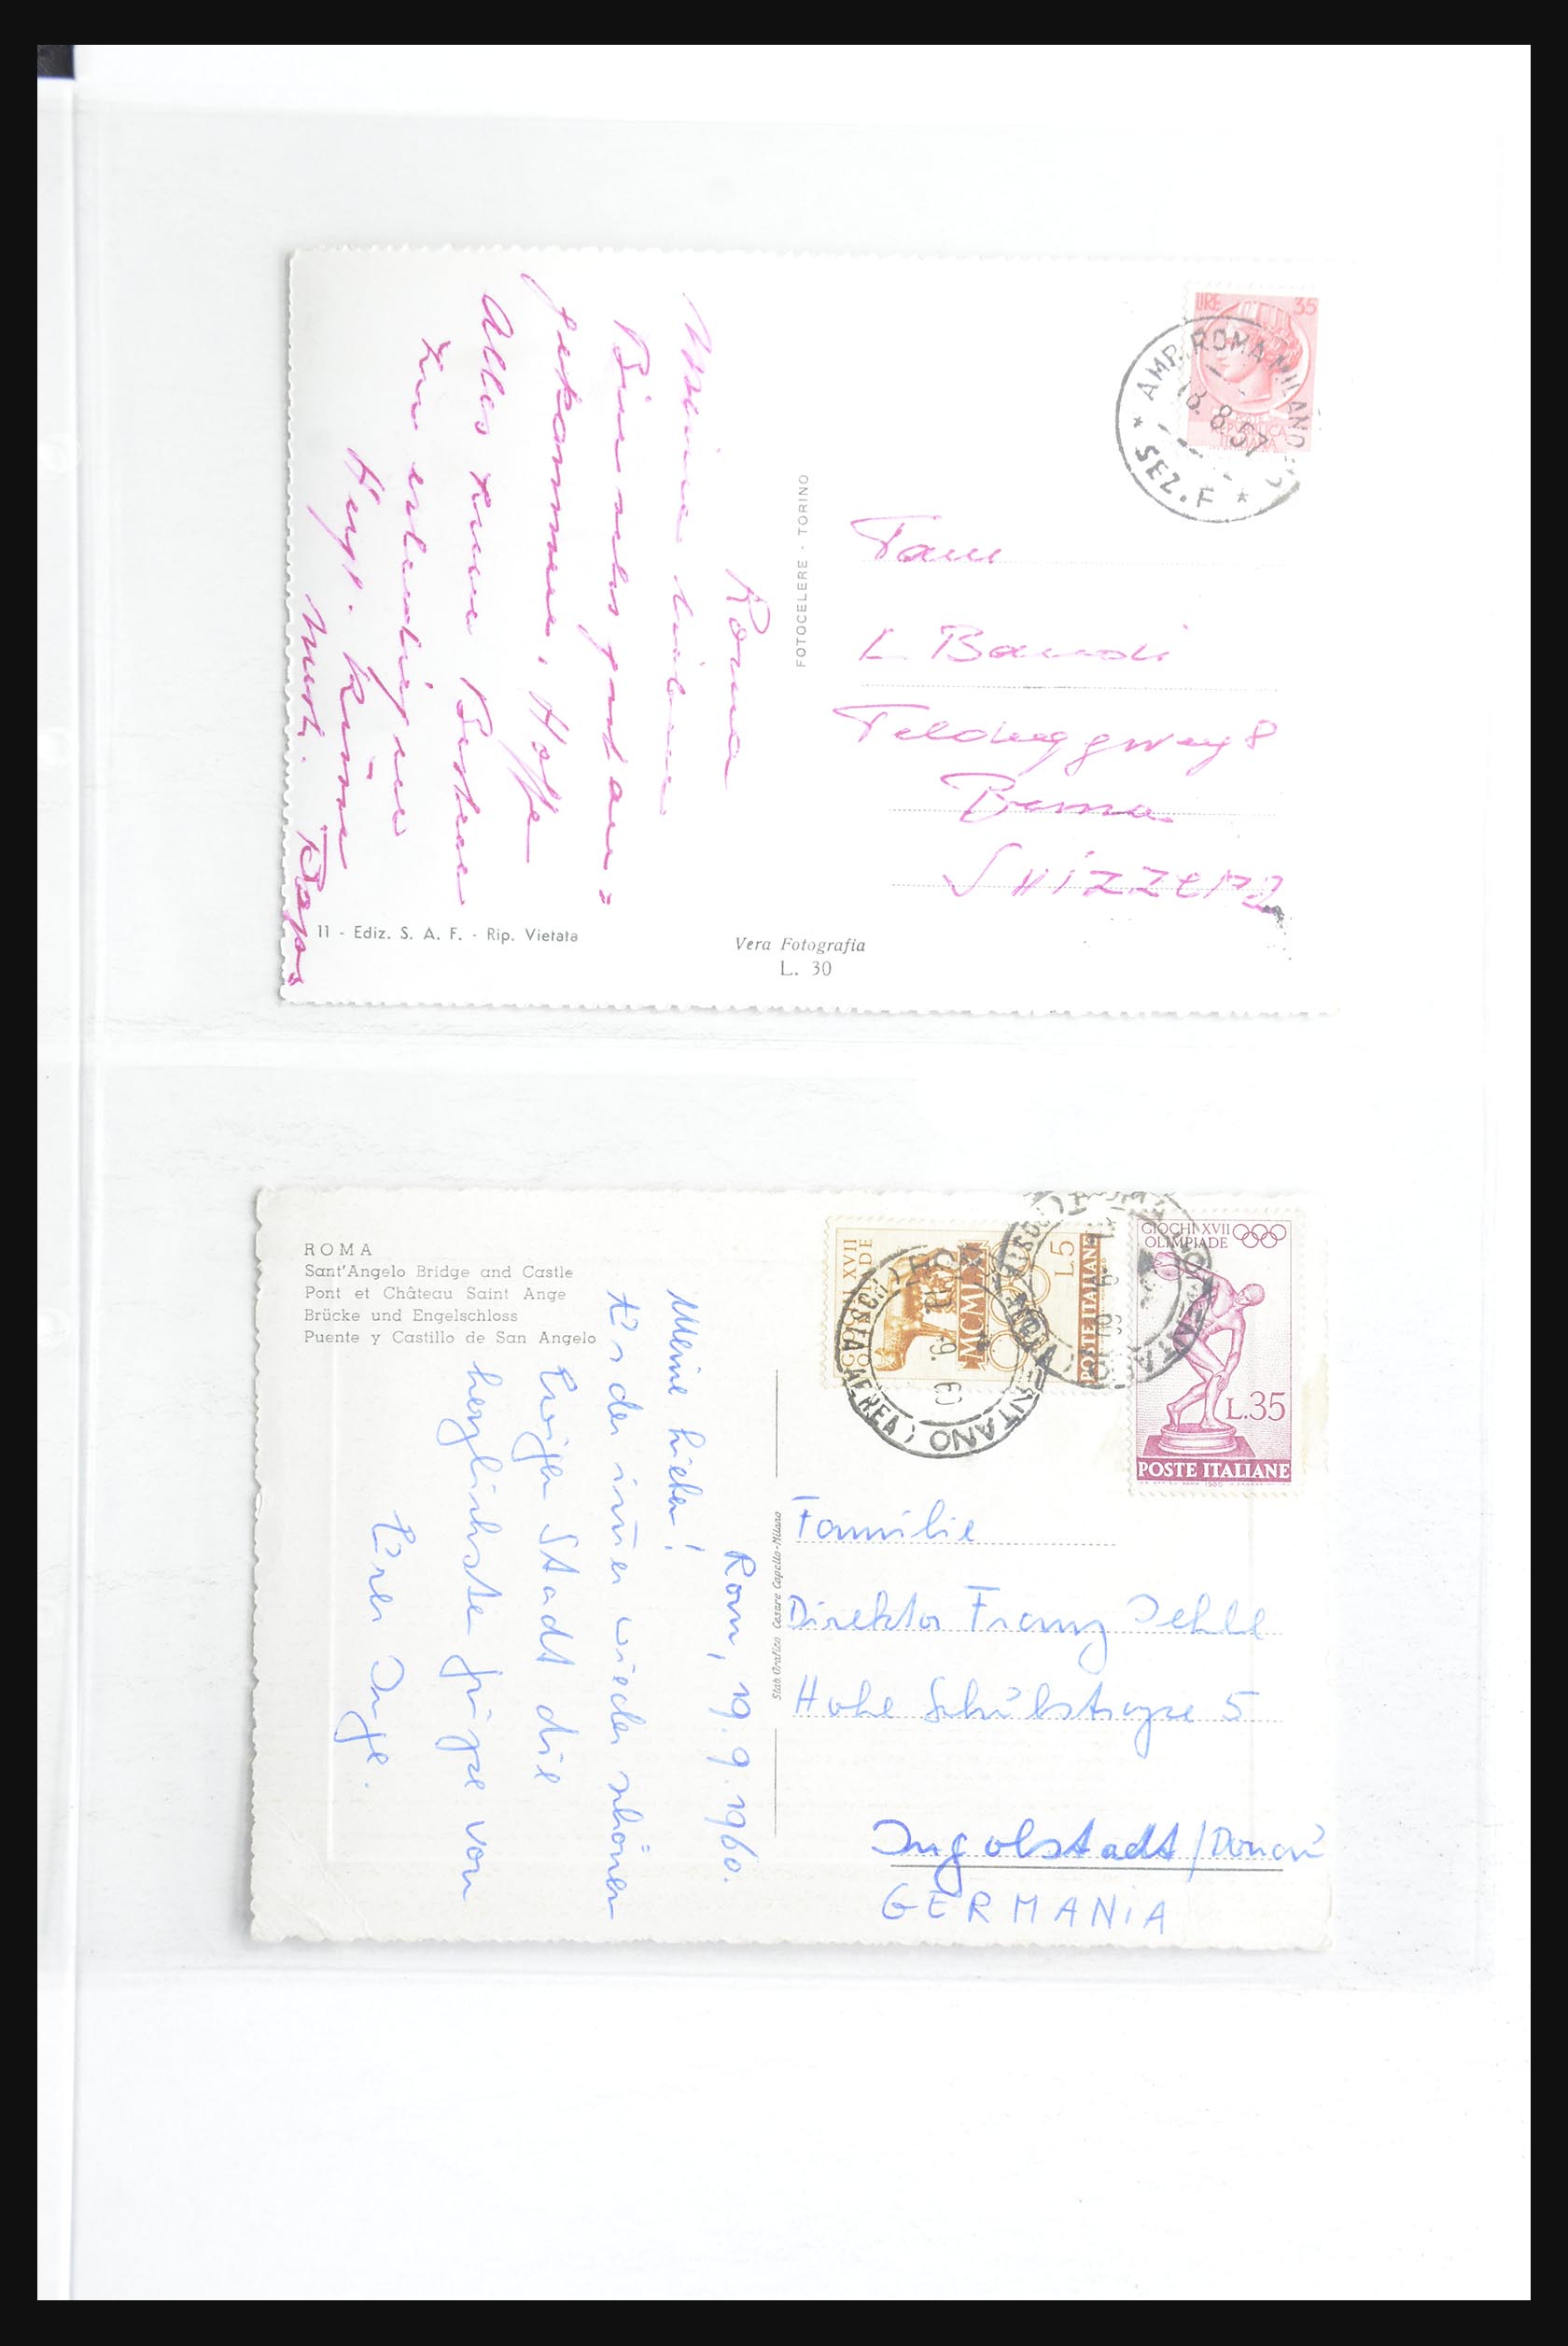 Roma
Meine Lieben
Bin sehr gut an=
gekommen, Hoffe
Alles zum Besten
zu erledigen
Herzl. Küsse
FOTOCELERE - TORINO
LIRE 35
REPUBBLICA
ITALIANA
AMB. ROMA MILANO
18.8.57
* SEZ. F *
Fam
L
Feldeggweg 8
Berna
SVIZZERA
11 - Ediz. S. A. F. - Rip. Vietata
Vera Fotografia
L. 30
ROMA
Sant'Angelo Bridge and Castle
Pont et Château Saint Ange
Brücke und Engelschloss
Puente y Castillo de San Angelo
Rom, 19.9.1960.
Meine Lieben!
Aus der immer wieder schönen
Ewigen Stadt die
herzlichsten Grüße von
Eurer Inge.
Stab. Grafico Cesare Capello-Milano
XVII
MCMLX
L5
POSTE ITALIANE
GIOCHI XVII
OLIMPIADE
L.35
POSTE ITALIANE
Familie
Direktor Franz
Hohe Schulstrasse 5
Ingolstadt/Donau
GERMANIA